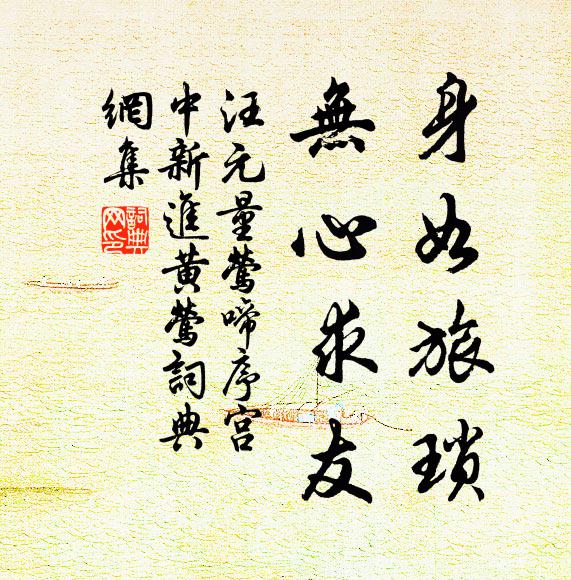 身如旅瑣
無心求友
汪元量鶯啼序宮
中新進黃鶯詞典
網集
詞典
网印